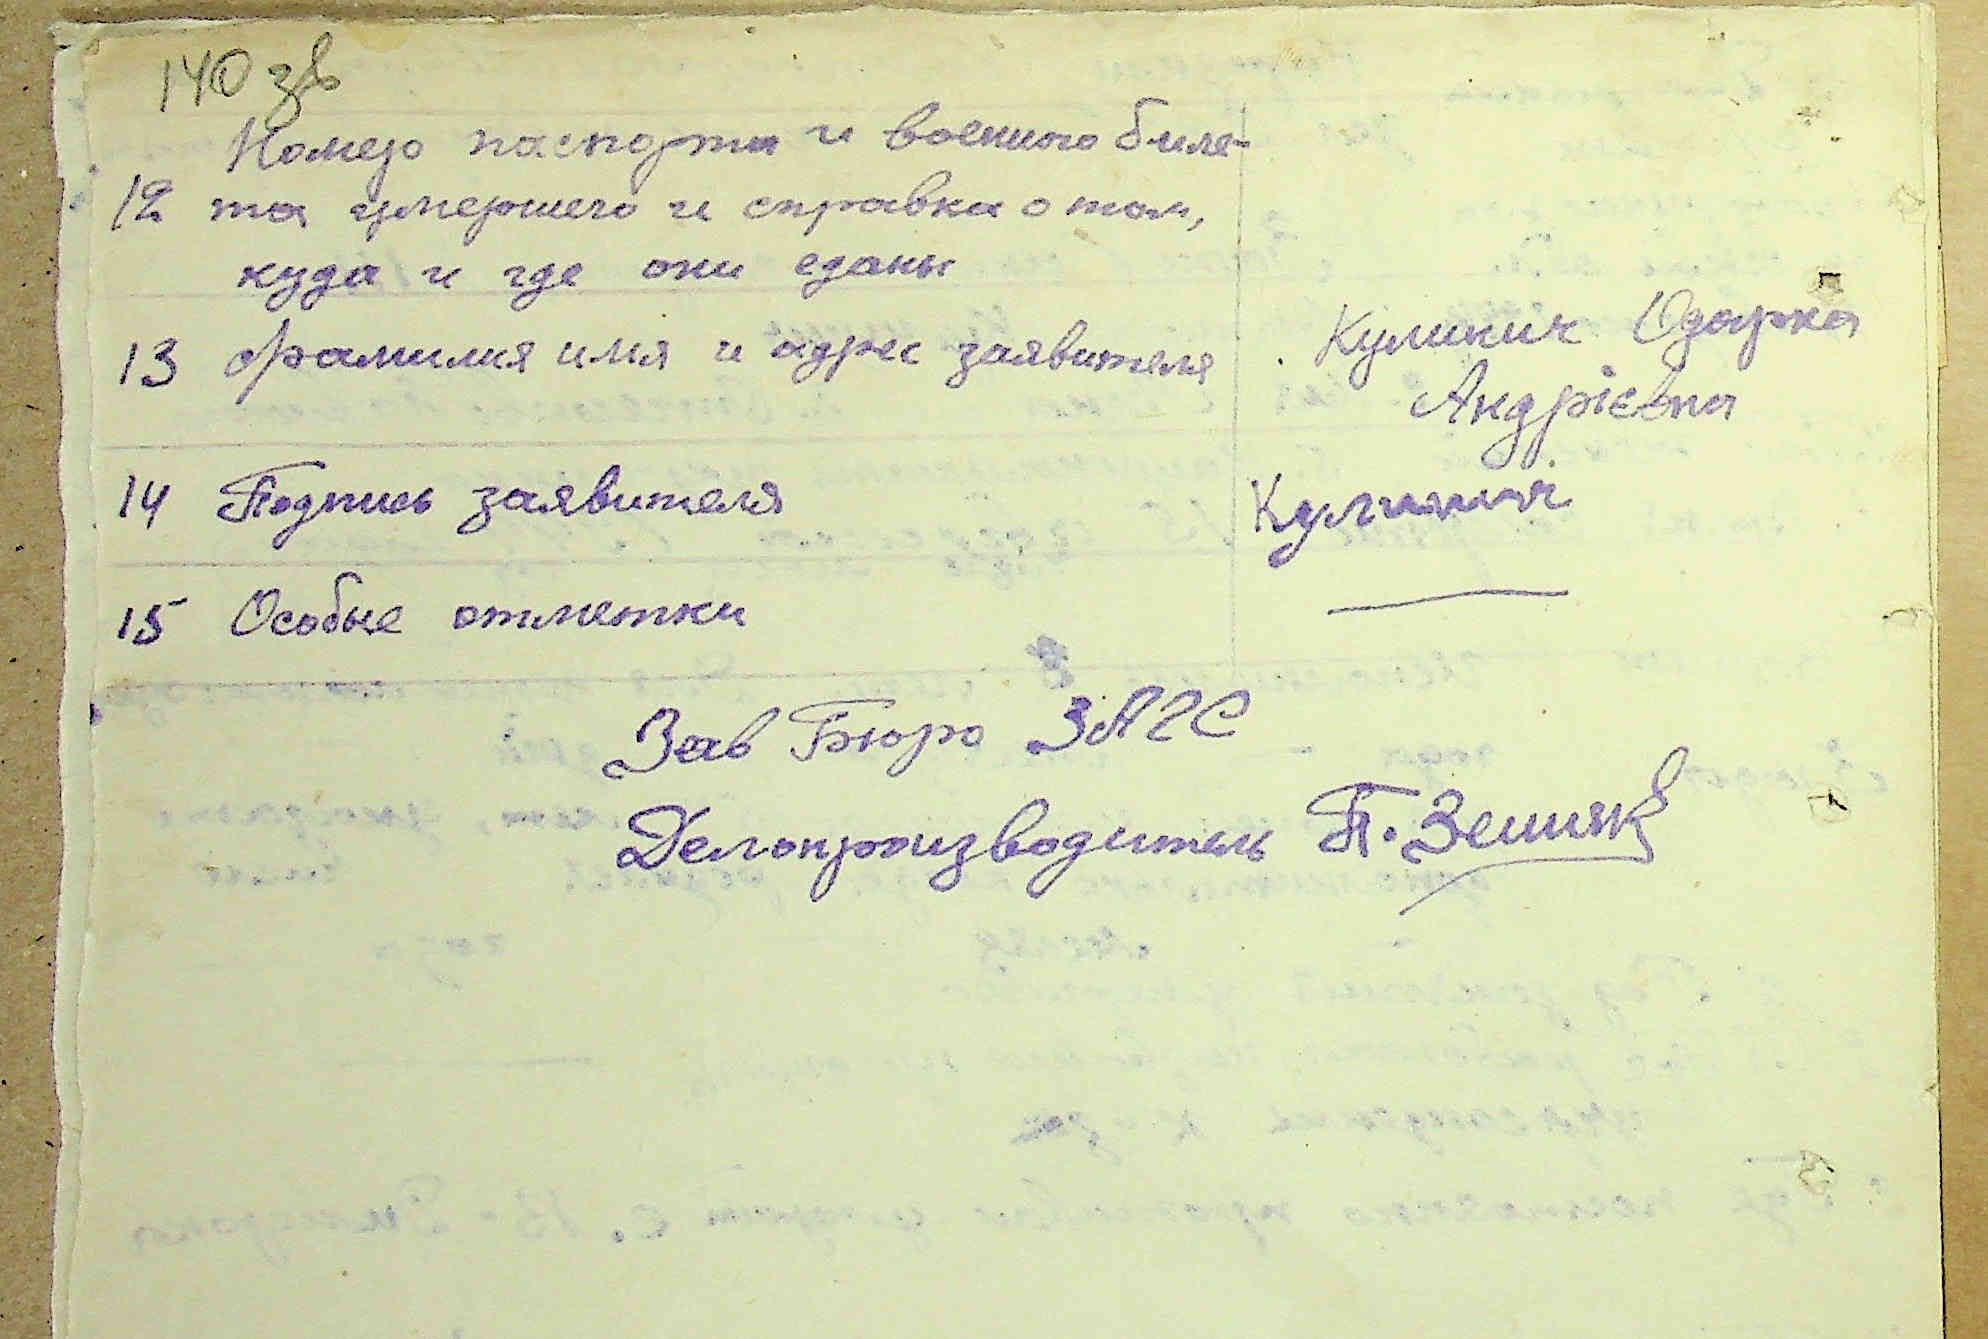 140 зв
Номер паспорта и военного биле-
12 та умершего и справка о том,
куда и где они сданы
13 Фамилия имя и адрес заявителя Кулинич Одарка
Андрієвна
14 Подпись заявителя Кулинич
15 Особые отметки
Зав Бюро ЗАГС
Делопроизводитель П.